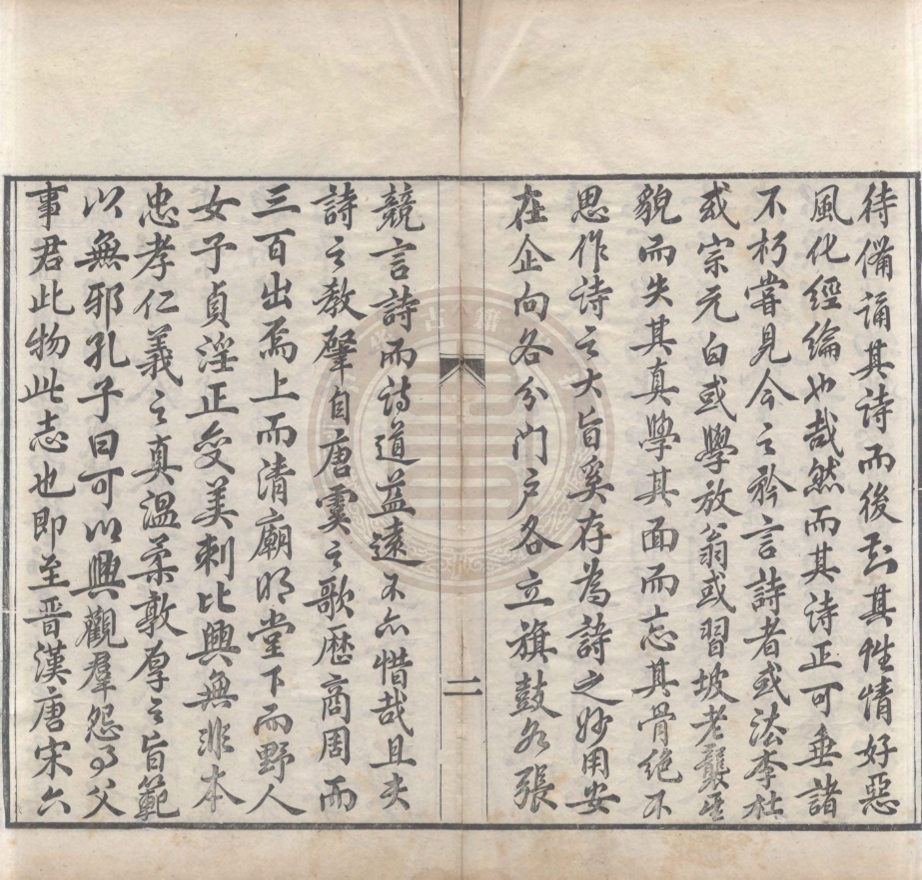 待備誦其詩而後知其性情好惡
風化經綸也哉然而其詩正可垂諸
不朽嘗見今之矜言詩者或法李杜
或宗元白或學放翁或習坡老襲其
貌而失其真學其面而忘其骨絕不
思作詩之大旨奚存為詩之妙用安
在企向各分門户各立旗鼓各張
二
競言詩而詩道益遠不亦惜哉且夫
詩之教肇自唐虞之歌歷商周而
三百出焉上而清廟明堂下而野人
女子貞淫正變美刺比興無非本
忠孝仁義之真温柔敦厚之旨範
以無邪孔子曰可以興觀羣怨事父
事君此物此志也即至晋漢唐宋六